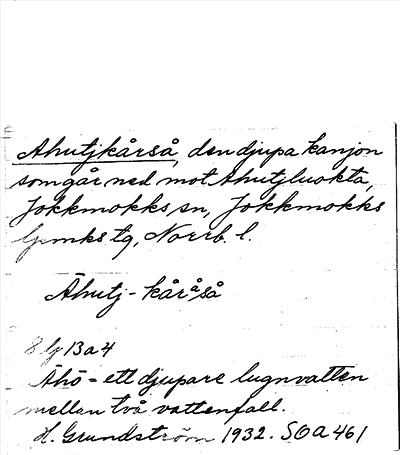 Ahutjkårså, den djupa kanjon
som går ned mot Ahutjluokta,
Jokkmokks sn, Jokkmokks
lpmks tg, Norrb. l.
Āhutj - kåråså
8 lj 13a4
Āhō = ett djupare lugnvatten
mellan två vattenfall.
H. Grundström 1932. SOA 461